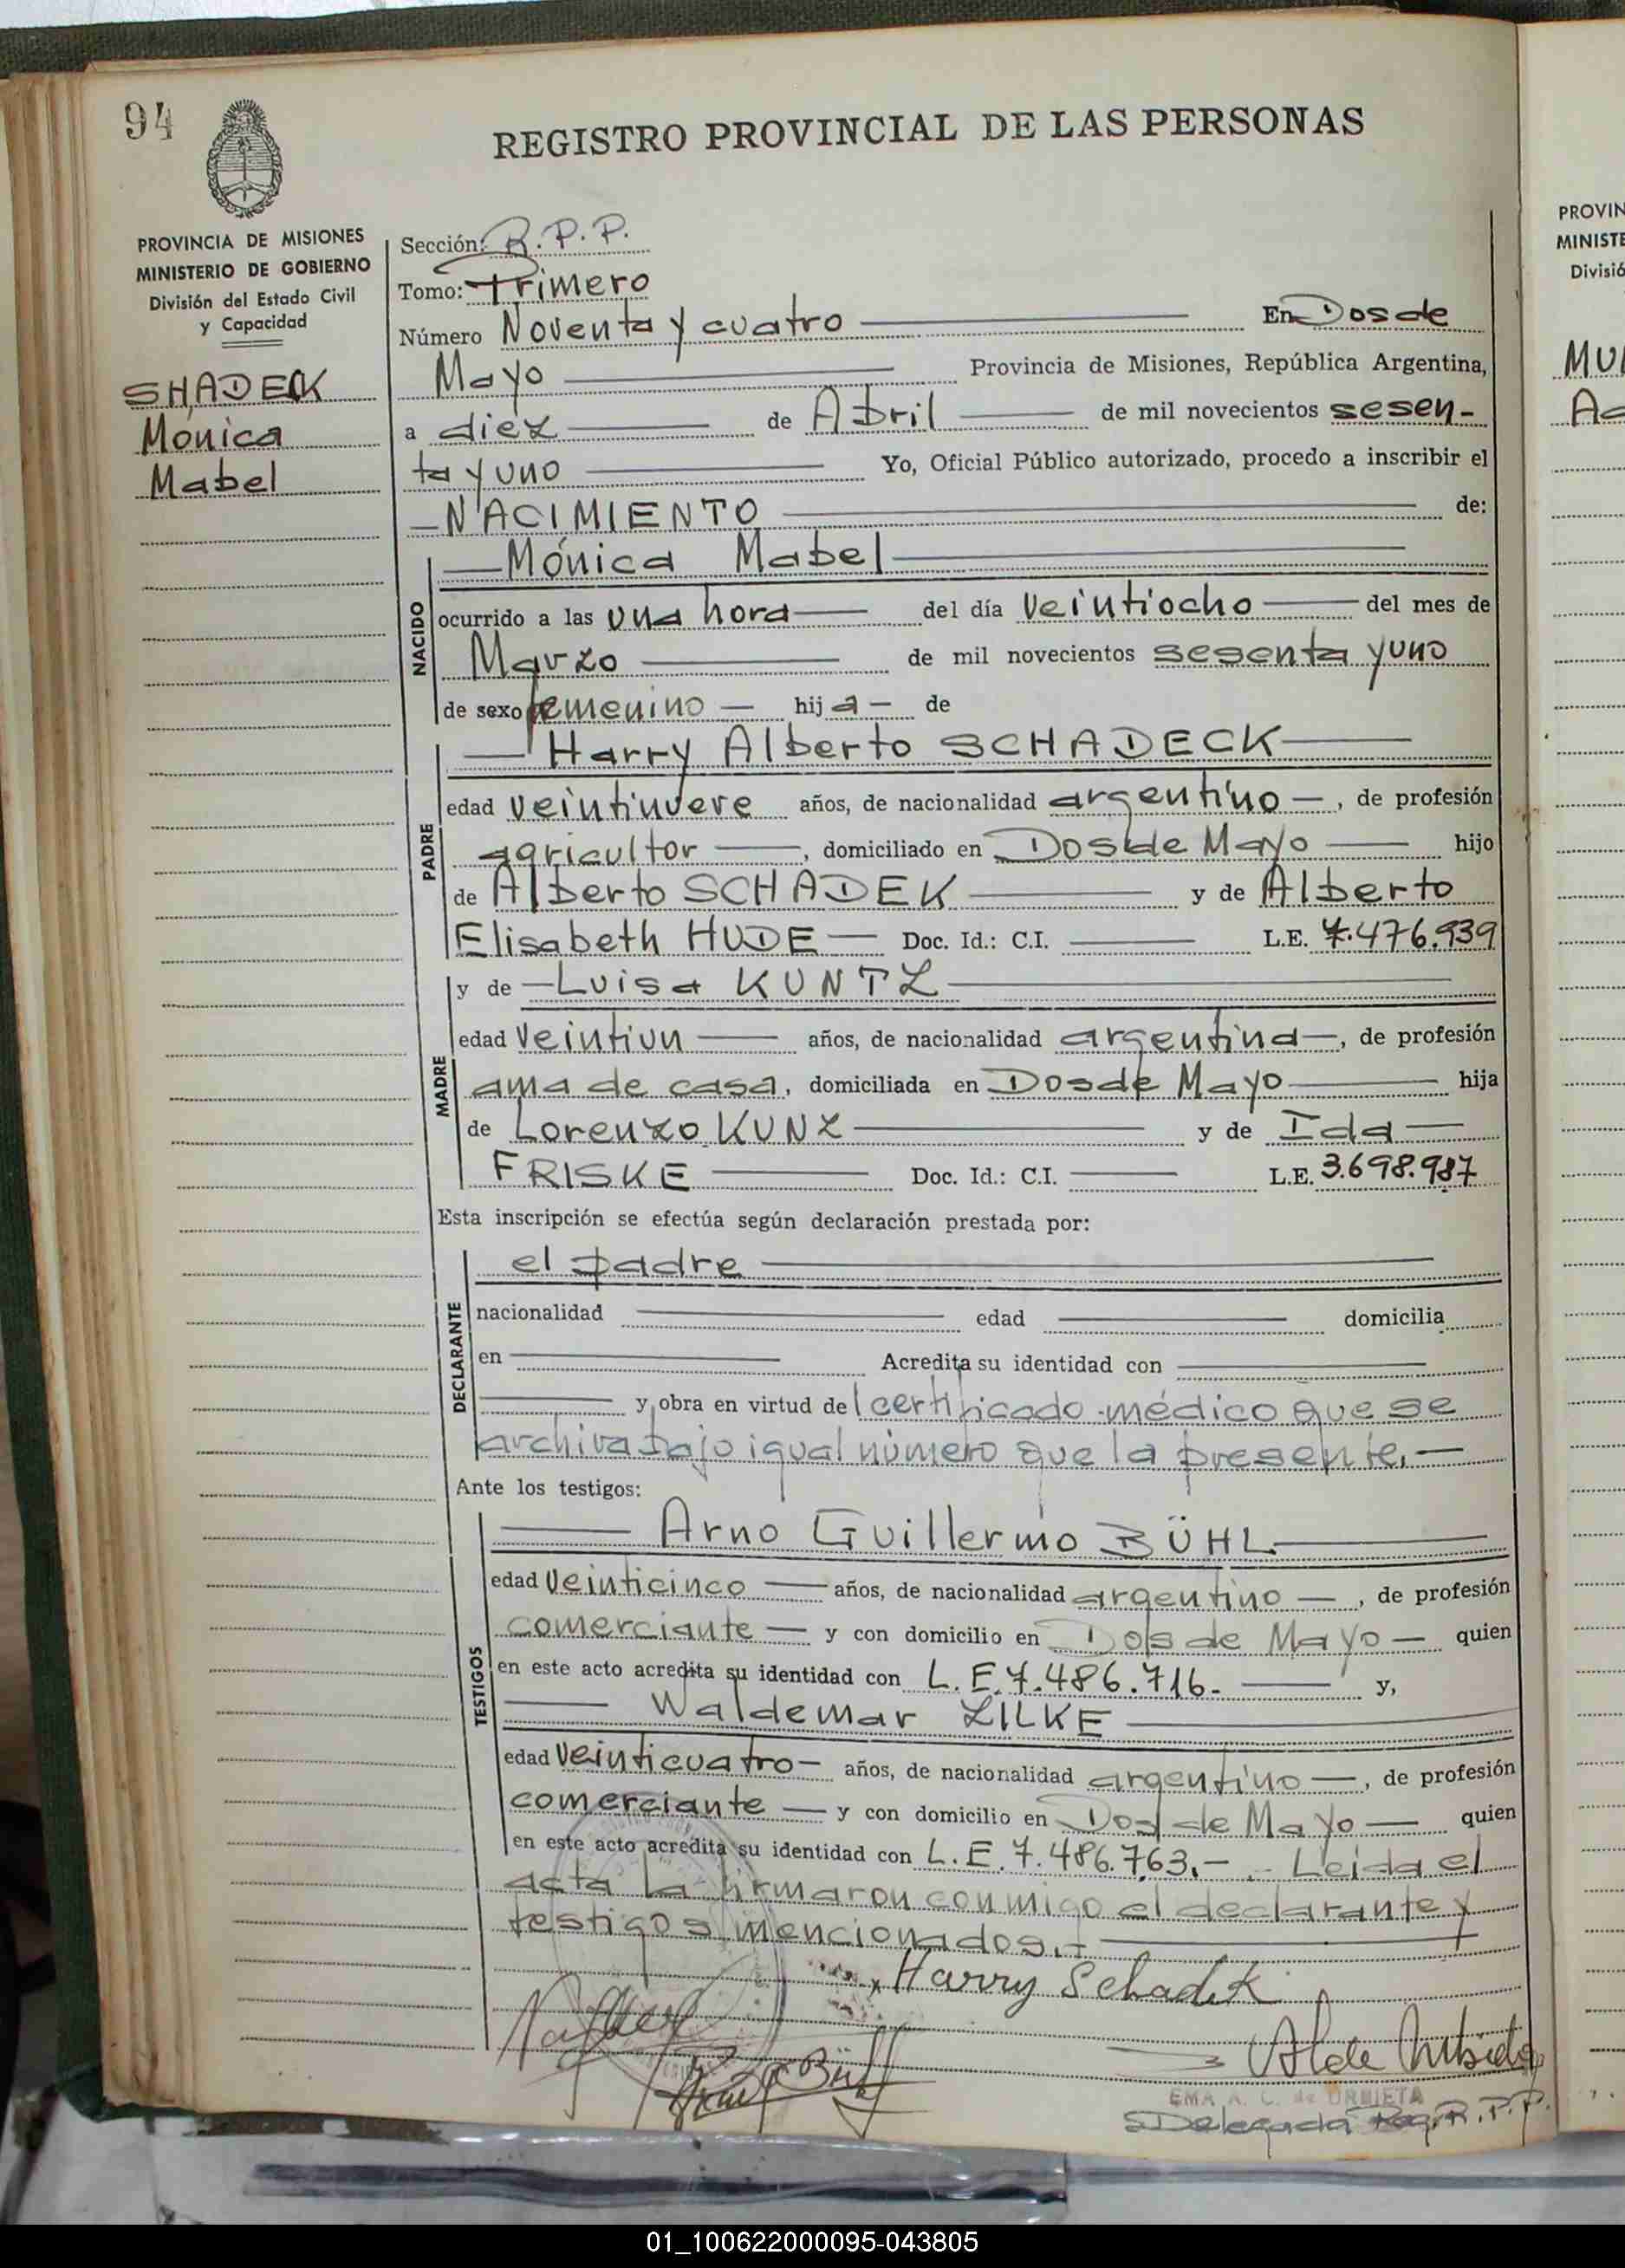 94
REGISTRO PROVINCIAL DE LAS PERSONAS
PROVINCIA DE MISIONES
MINISTERIO DE GOBIERNO
División del Estado Civil
y Capacidad
SHADECK
Mónica
Mabel
Sección: R.P.P.
Tomo: Primero
Número Noventa y cuatro En Dos de
Mayo Provincia de Misiones, República Argentina,
a diez de Abril de mil novecientos sesen-
ta y uno Yo, Oficial Público autorizado, procedo a inscribir el
NACIMIENTO de:
NACIDO
Mónica Mabel
ocurrido a las una hora del día veintiocho del mes de
Marzo de mil novecientos sesenta y uno
de sexo femenino hija de
PADRE
Harry Alberto SCHADECK
edad veintinueve años, de nacionalidad argentino, de profesión
agricultor, domiciliado en Dos de Mayo hijo
de Alberto SCHADEK y de Alberto
Elisabeth HUDE Doc. Id.: C.I. L.E. 7.476.939
MADRE
y de Luisa KUNTZ
edad veintiun años, de nacionalidad argentina, de profesión
ama de casa, domiciliada en Dos de Mayo hija
de Lorenzo KUNZ y de Ida
FRISKE Doc. Id.: C.I. L.E. 3.698.987
Esta inscripción se efectúa según declaración prestada por:
DECLARANTE
el padre
nacionalidad edad domicilia
en Acredita su identidad con
y obra en virtud del certificado médico que se
archiva bajo igual número que la presente.
Ante los testigos:
TESTIGOS
Arno Guillermo BÜHL
edad veinticinco años, de nacionalidad argentino, de profesión
comerciante y con domicilio en Dos de Mayo quien
en este acto acredita su identidad con L.E. 7.486.716.- y,
Waldemar ZILKE
edad veinticuatro años, de nacionalidad argentino, de profesión
comerciante y con domicilio en Dos de Mayo quien
en este acto acredita su identidad con L.E. 7.486.763.- Leida el
acta la firmaron conmigo el declarante y
testigos mencionados.-
Harry Schadek
Bühl
EMA A. C. de URBIETA
Delegada Reg. R.P.P.
PROVIN
MINISTE
Divisió
MU
01_100622000095-043805